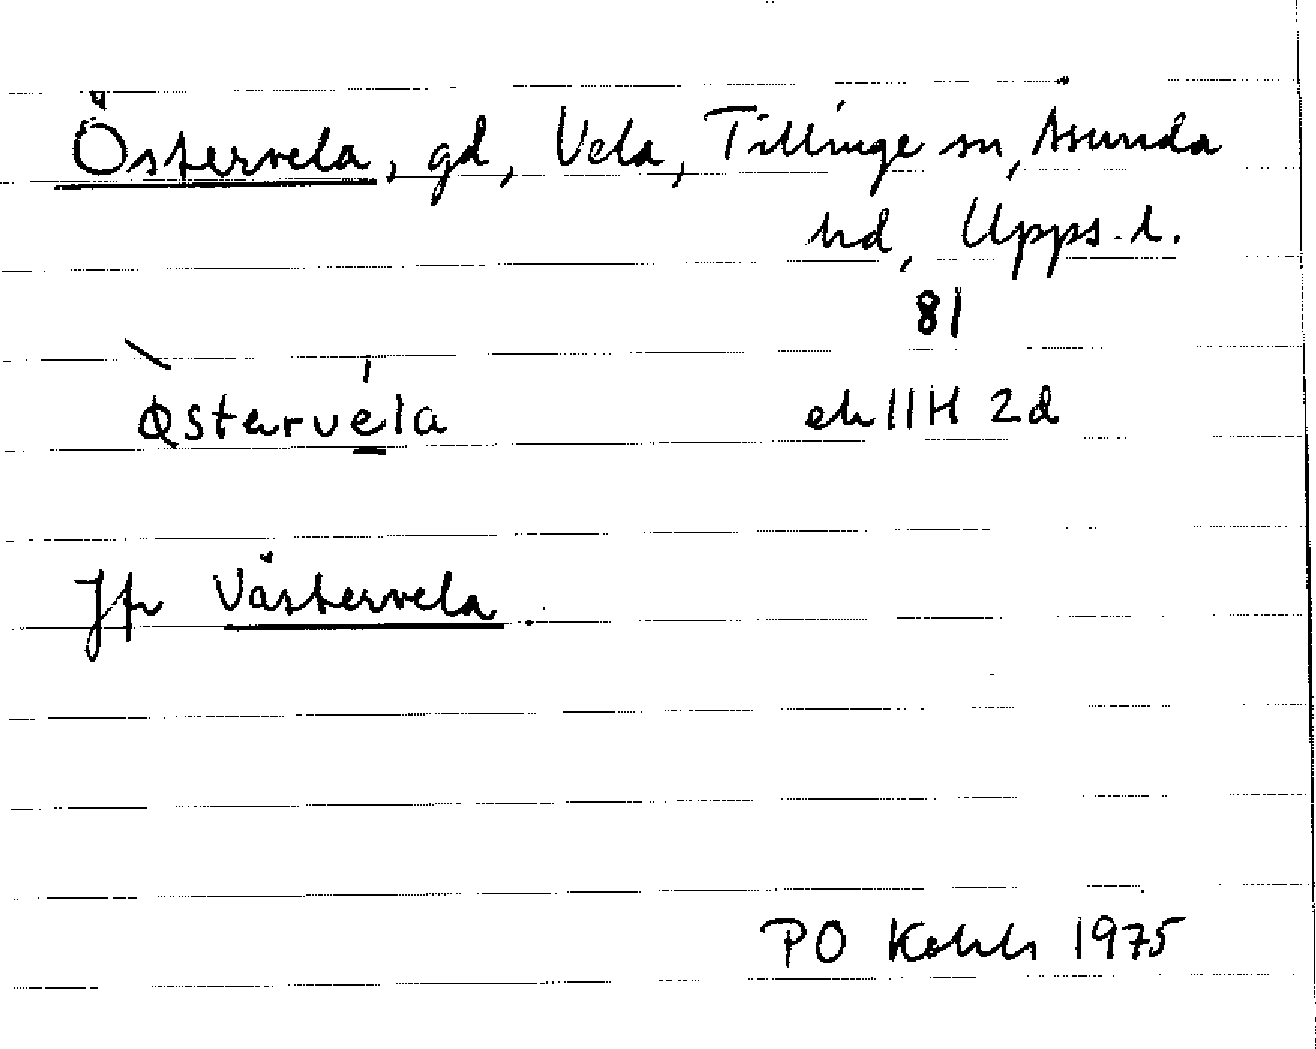 Östervela, gd, Vela, Tillinge sn, Åsunda
hd, Upps. l.
81
ek 11H 2d
Jfr Västervela.
PO 1975